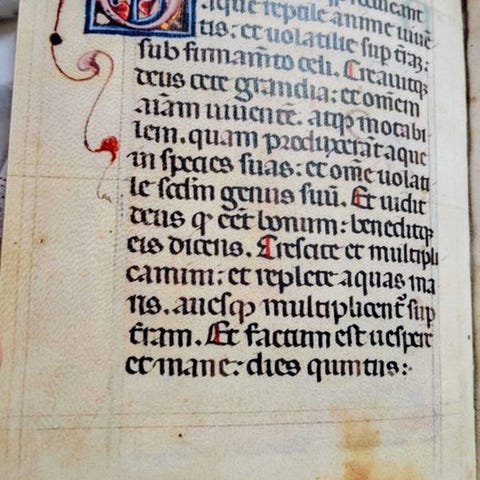 producant
aque reptile anime uiuē
tis: et uolatile sup t̄rā:
sub firmam̄to celi. Creauitqꝫ
deus cete grandia: et om̄em
aīam uiuentē. atqꝫ motabi
lem. quam produxerāt aque
in species suas: et om̄e uolati
le sc̄dm genus suū. Et uidit
deus ꝙ eēt bonum: benedixitqꝫ
eis dicens. Crescite et multipli
camini: et replete aquas ma
ris. auesqꝫ multiplicent̄ sup
t̄ram. Et factum est uespere
et mane: dies quintus:·